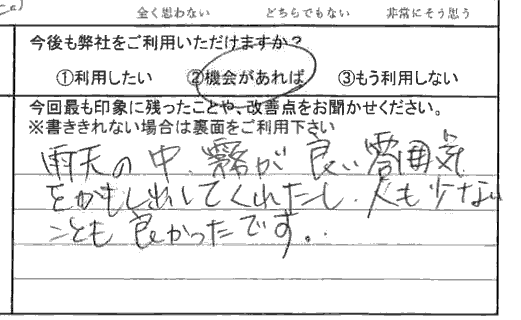 全く思わない どちらでもない 非常にそう思う
今後も弊社をご利用いただけますか？
①利用したい ②機会があれば ③もう利用しない
今回最も印象に残ったことや、改善点をお聞かせください。
※書ききれない場合は裏面をご利用下さい
雨天の中、霧が良い雰囲気
をかもし出してくれたし、人も少ない
ことも良かったです。